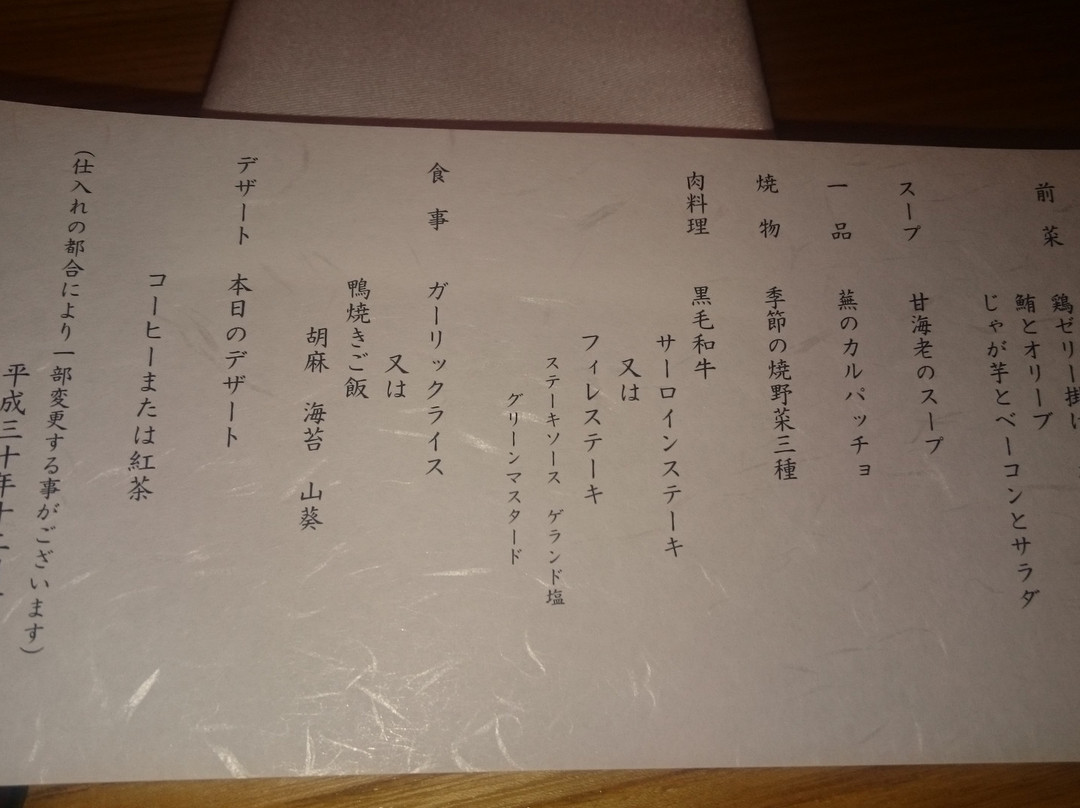 前菜 鶏ゼリー掛け
鮪とオリーブ
じゃが芋とベーコンとサラダ
スープ 甘海老のスープ
一品 蕪のカルパッチョ
焼物 季節の焼野菜三種
肉料理 黒毛和牛
サーロインステーキ
又は
フィレステーキ
ステーキソース ゲランド塩
グリーンマスタード
食事 ガーリックライス
又は
鴨焼きご飯
胡麻 海苔 山葵
デザート 本日のデザート
コーヒーまたは紅茶
(仕入れの都合により一部変更する事がございます)
平成三十年十二